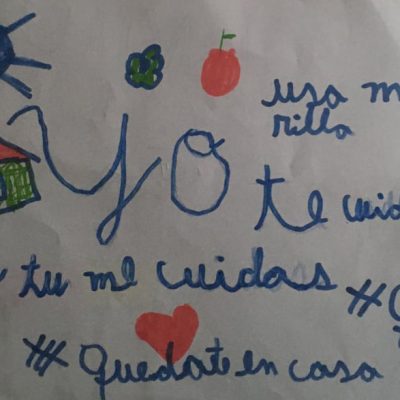 usa m
rilla
Yo
te cuid
tu me cuidas #
# Quedate en casa